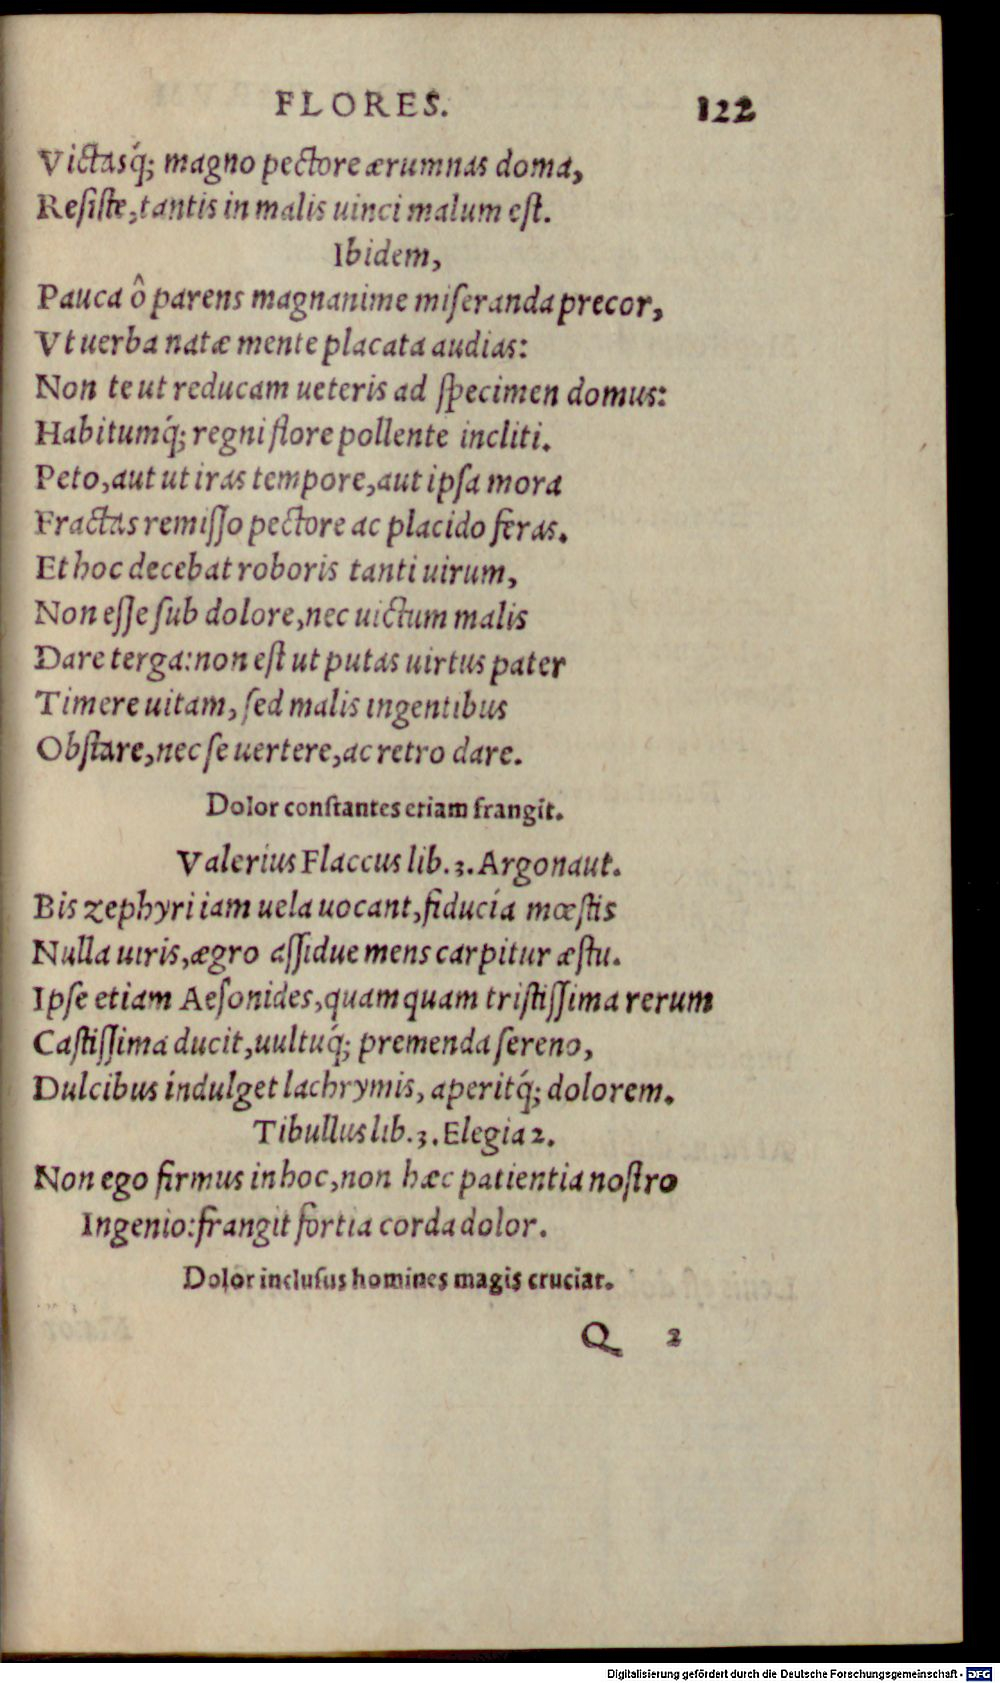 FLORES. 122
Victasq́; magno pectore ærumnas doma,
Resiste, tantis in malis uinci malum est.
Ibidem,
Pauca ô parens magnanime miseranda precor,
Vt uerba natæ mente placata audias:
Non te ut reducam ueteris ad specimen domus:
Habitumq́; regni flore pollente incliti.
Peto, aut ut iras tempore, aut ipsa mora
Fractas remisso pectore ac placido feras.
Et hoc decebat roboris tanti uirum,
Non esse sub dolore, nec uictum malis
Dare terga: non est ut putas uirtus pater
Timere uitam, sed malis ingentibus
Obstare, nec se uertere, ac retro dare.
Dolor constantes etiam frangit.
Valerius Flaccus lib. 3. Argonaut.
Bis zephyri iam uela uocant, fiducia mœstis
Nulla uiris, ægro assidue mens carpitur æstu.
Ipse etiam Aesonides, quamquam tristissima rerum
Castissima ducit, uultuq́; premenda sereno,
Dulcibus indulget lachrymis, aperitq́; dolorem.
Tibullus lib. 3. Elegia 2.
Non ego firmus in hoc, non hæc patientia nostro
Ingenio: frangit fortia corda dolor.
Dolor inclusus homines magis cruciat.
Q 2
Digitalisierung gefördert durch die Deutsche Forschungsgemeinschaft - DFG